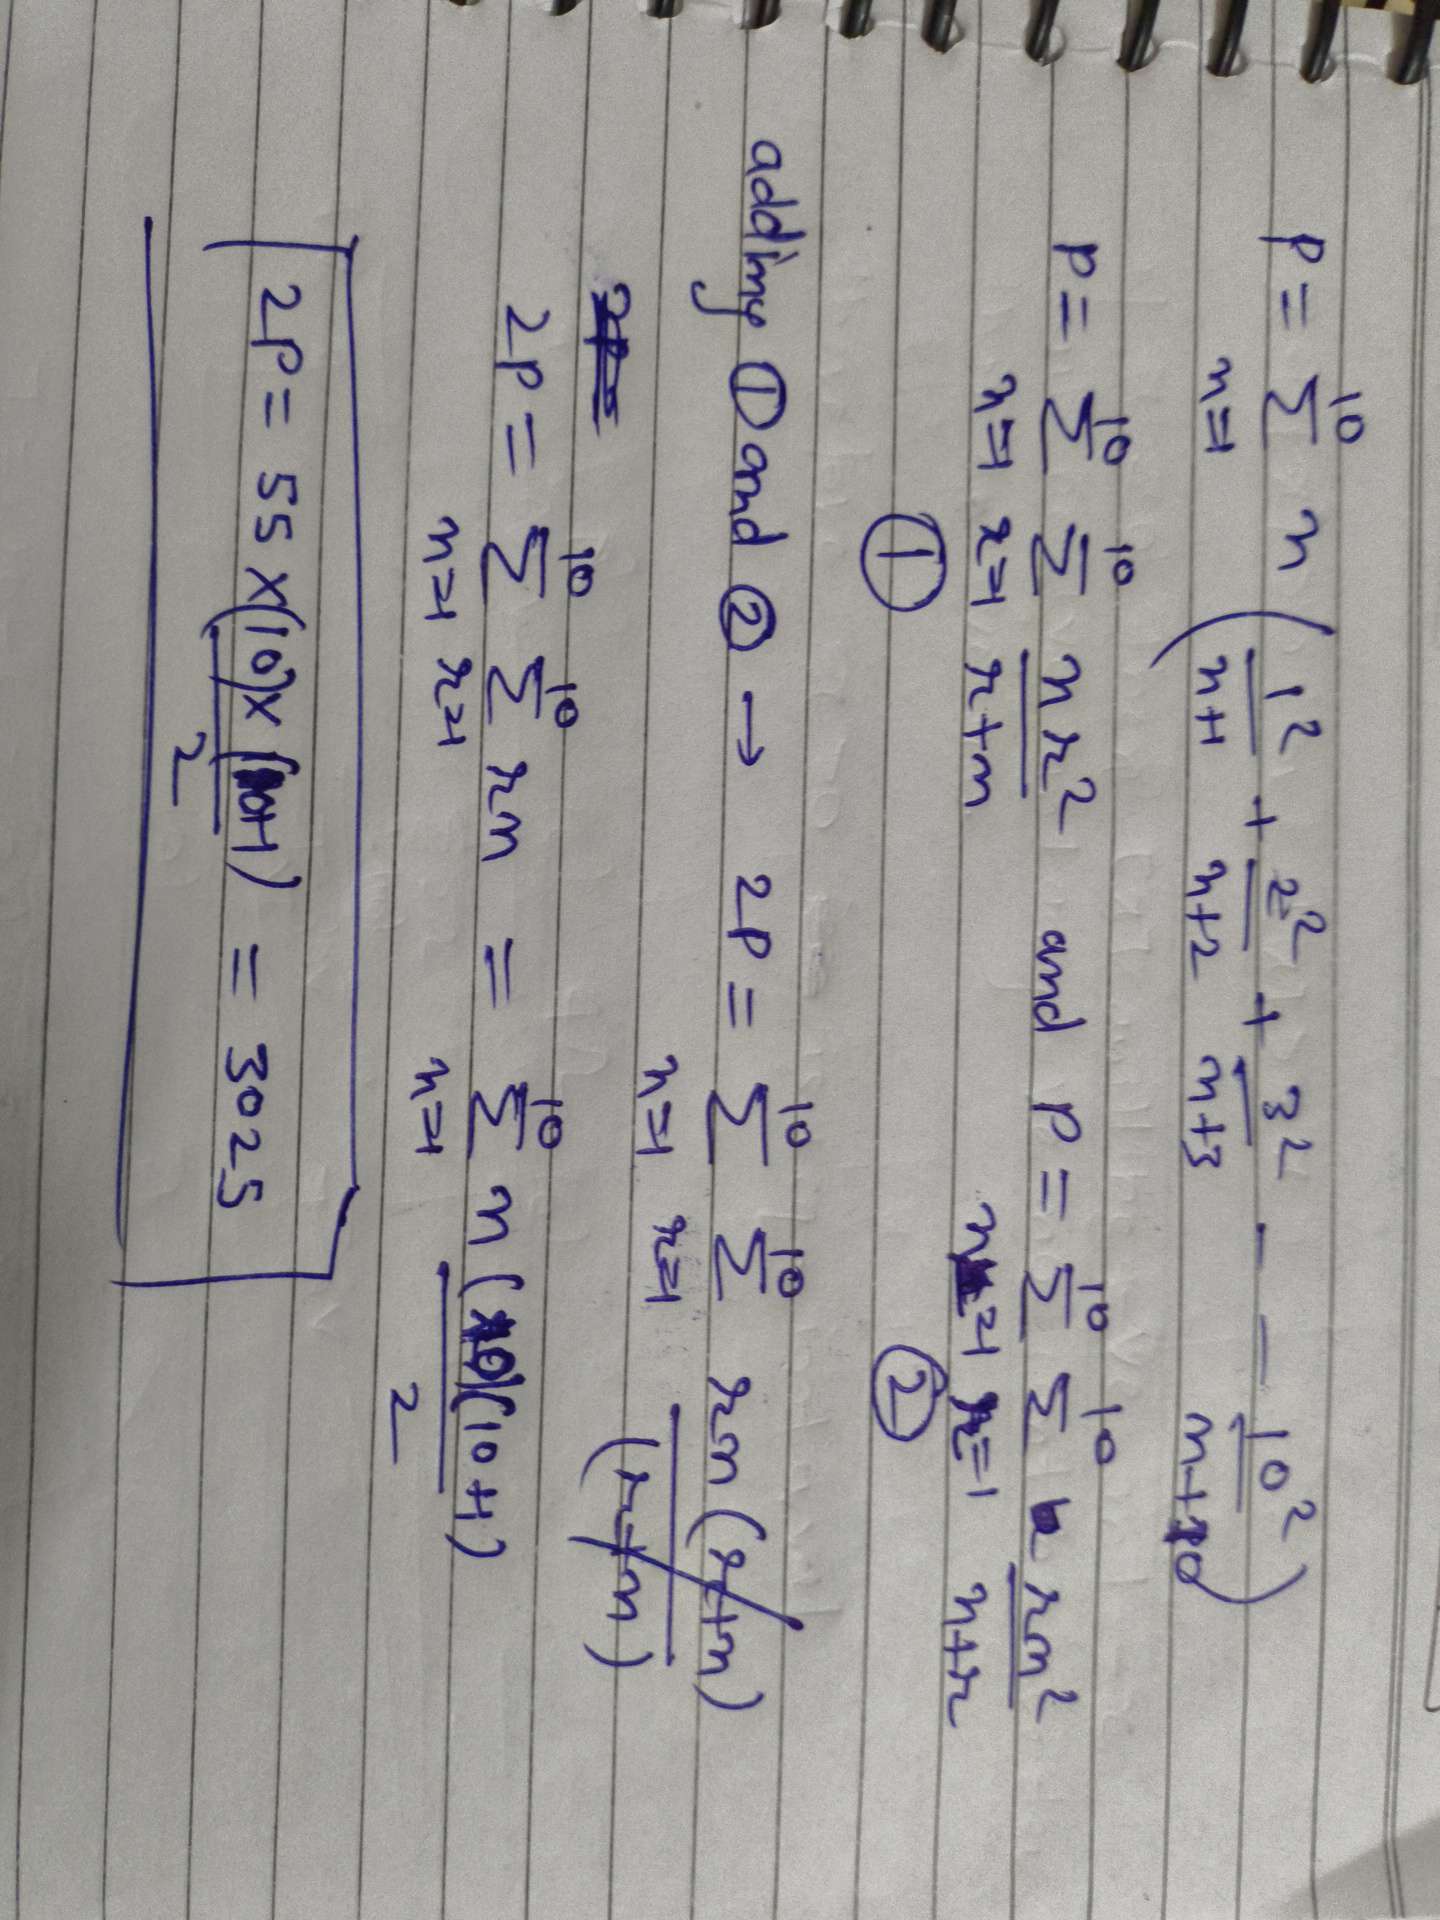 P = ∑_{n=1}^{10} n ( 1²/(n+1) + 2²/(n+2) + 3²/(n+3) - - - 10²/(n+10) )
P = ∑_{n=1}^{10} ∑_{r=1}^{10} nr²/(r+n) and P = ∑_{n=1}^{10} ∑_{r=1}^{10} rn²/(n+r)
① ②
adding ① and ② → 2P = ∑_{n=1}^{10} ∑_{r=1}^{10} rn(r+n)/(r+n)
2P = ∑_{n=1}^{10} ∑_{r=1}^{10} rn = ∑_{n=1}^{10} n(10)(10+1)/2
2P = 55 × (10) × (10+1)/2 = 3025